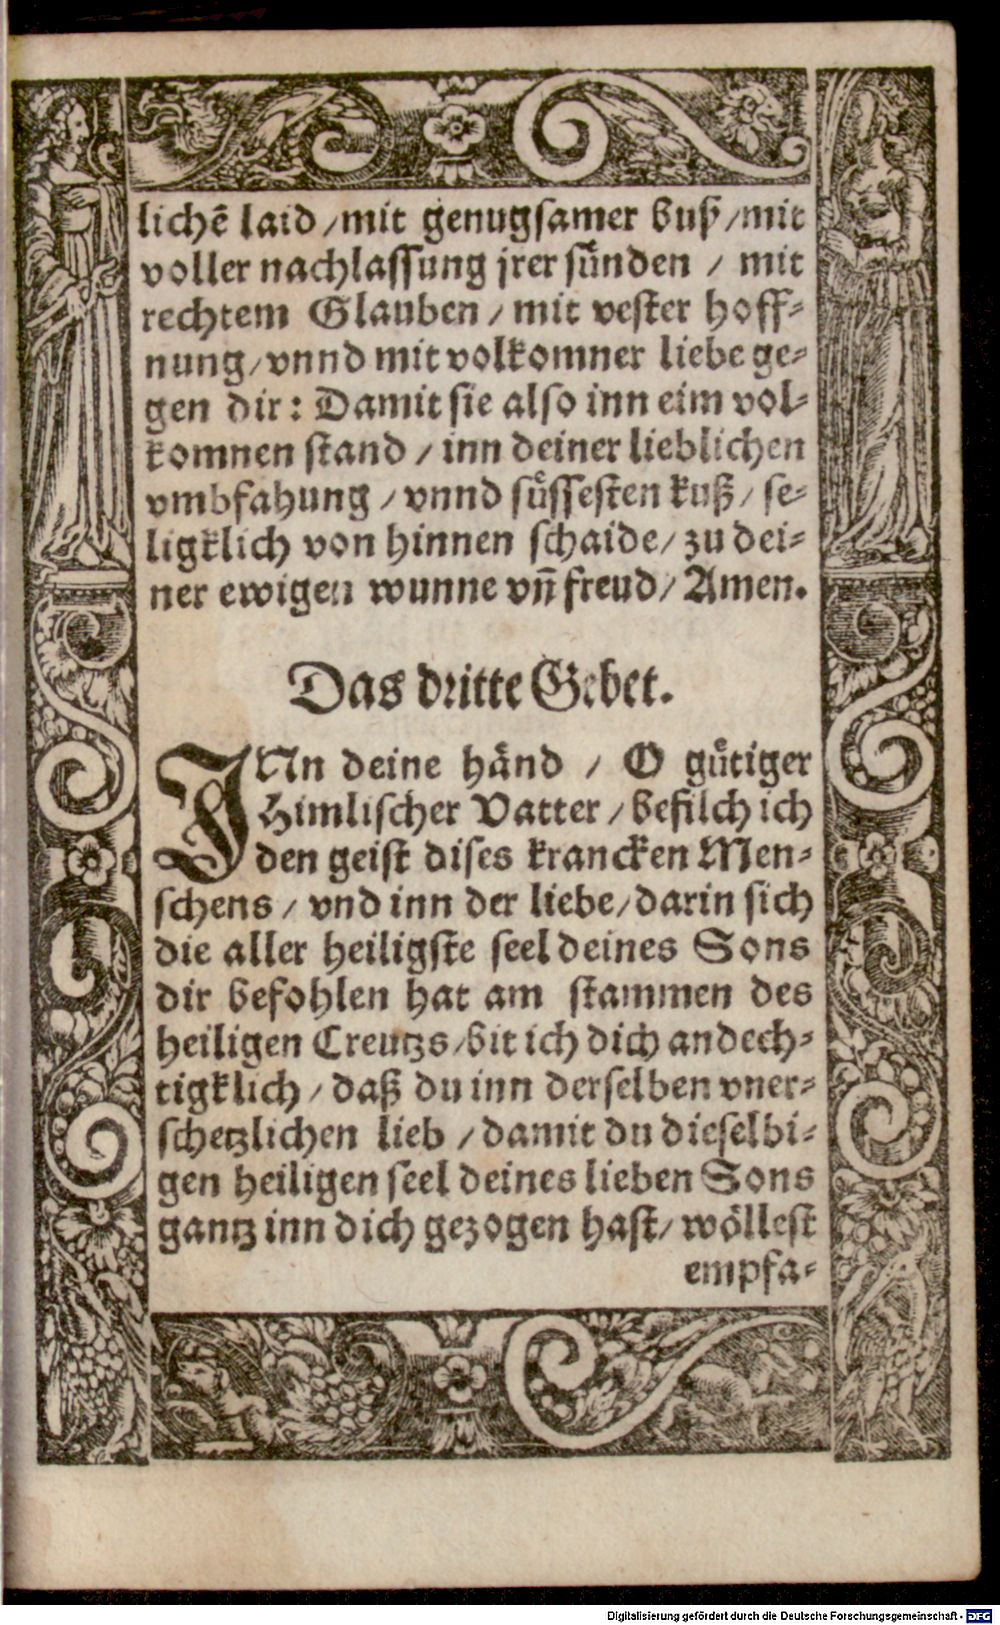 lichē laid /mit genugsamer buß /mit
voller nachlassung jrer sünden / mit
rechtem Glauben / mit vester hoff-
nung / vnnd mit volkomner liebe ge-
gen dir: Damit sie also inn eim vol-
komnen stand / inn deiner lieblichen
vmbfahung / vnnd süssesten kuß / se-
ligklich von hinnen schaide / zu dei-
ner ewigen wunne vn̄ freud / Amen.
Das dritte Gebet.
JNn deine händ / O gütiger
Himlischer Vatter / befilch ich
den geist dises krancken Men-
schens / vnd inn der liebe / darin sich
die aller heiligste seel deines Sons
dir befohlen hat am stammen des
heiligen Creutzs / bit ich dich andech-
tigklich / daß du inn derselben vner-
schetzlichen lieb / damit du dieselbi-
gen heiligen seel deines lieben Sons
gantz inn dich gezogen hast / wöllest
empfa-
Digitalisierung gefördert durch die Deutsche Forschungsgemeinschaft - DFG